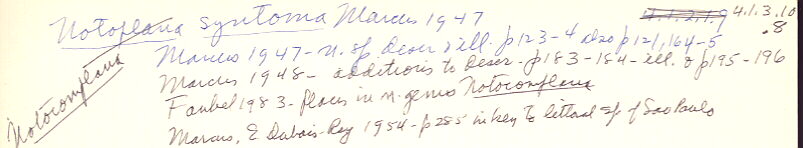 Notoplana syntoma Marcus 1947
4.1.2.1.9 4.1.3.10
.8
Marcus 1947 - n. sp descr & ill. p 123-4 also p 121, 164-5
Marcus 1948 - additions to descr - p 183-184 - ill. & p 195-196
Faubel 1983 - Places in n. genus Notocomplana
Marcus, E Dubois-Rey 1954 - p 285 in key to littoral sp of Sao Paulo
Notocomplana